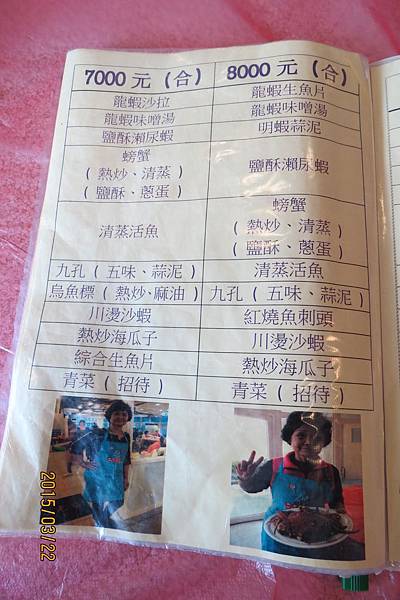 7000 元 (合)
龍蝦沙拉
龍蝦味噌湯
鹽酥瀨尿蝦
螃蟹
( 熱炒、清蒸 )
( 鹽酥、蔥蛋 )
清蒸活魚
九孔 ( 五味、蒜泥 )
烏魚標 ( 熱炒、麻油 )
川燙沙蝦
熱炒海瓜子
綜合生魚片
青菜 ( 招待 )
8000 元 (合)
龍蝦生魚片
龍蝦味噌湯
明蝦蒜泥
鹽酥瀨尿蝦
螃蟹
( 熱炒、清蒸 )
( 鹽酥、蔥蛋 )
清蒸活魚
九孔 ( 五味、蒜泥 )
紅燒魚刺頭
川燙沙蝦
熱炒海瓜子
青菜 ( 招待 )
2015/03/22